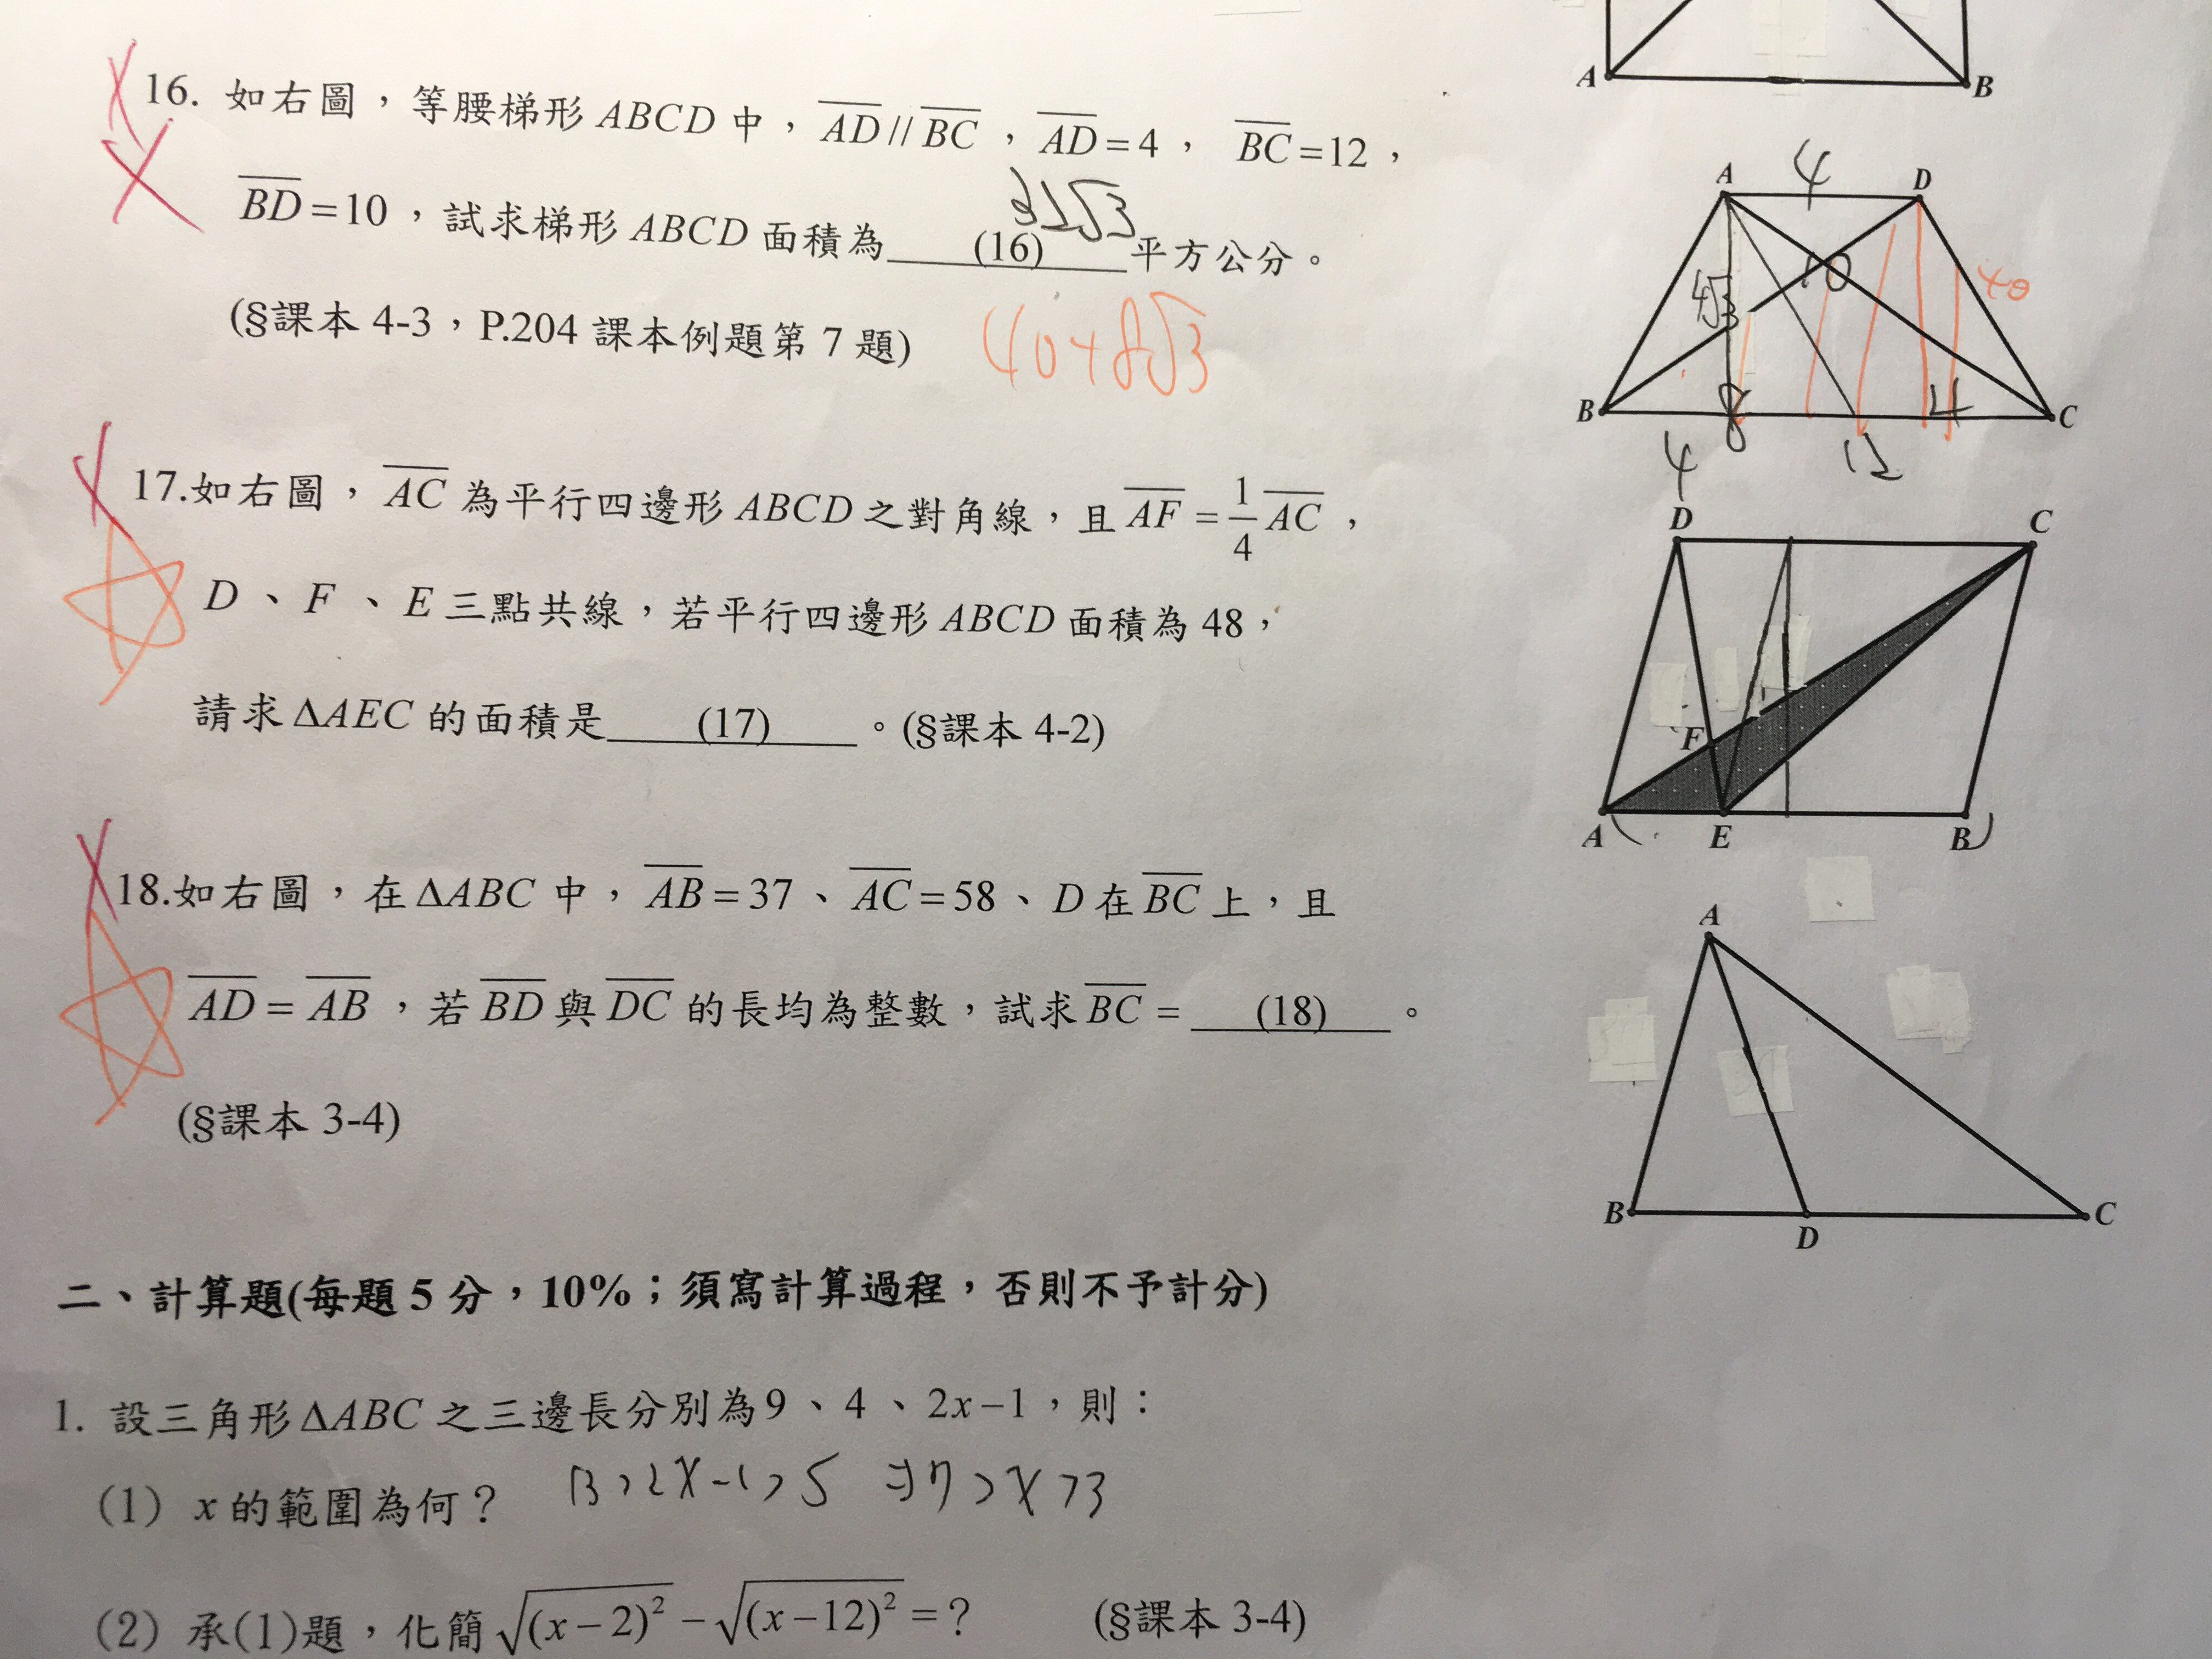 A
B
16. 如右圖，等腰梯形 ABCD 中，AD // BC，AD = 4， BC = 12，
BD = 10，試求梯形 ABCD 面積為 (16) 平方公分。
32√3
(§課本 4-3，P.204 課本例題第 7 題)
40+8√3
A
4
D
4√3
10
40
B
8
4
C
4
12
17.如右圖，AC 為平行四邊形 ABCD 之對角線，且 AF = 1/4 AC，
D、F、E 三點共線，若平行四邊形 ABCD 面積為 48，
請求 ΔAEC 的面積是 (17) 。(§課本 4-2)
D
C
F
A
E
B
18.如右圖，在 ΔABC 中，AB = 37、AC = 58、D 在 BC 上，且
AD = AB，若 BD 與 DC 的長均為整數，試求 BC = (18) 。
(§課本 3-4)
A
B
D
C
二、計算題(每題 5 分，10%；須寫計算過程，否則不予計分)
1. 設三角形 ΔABC 之三邊長分別為 9、4、2x−1，則：
(1) x 的範圍為何？ 13>2x-1>5 ⇒7>x>3
(2) 承(1)題，化簡 √(x−2)² − √(x−12)² = ? (§課本 3-4)